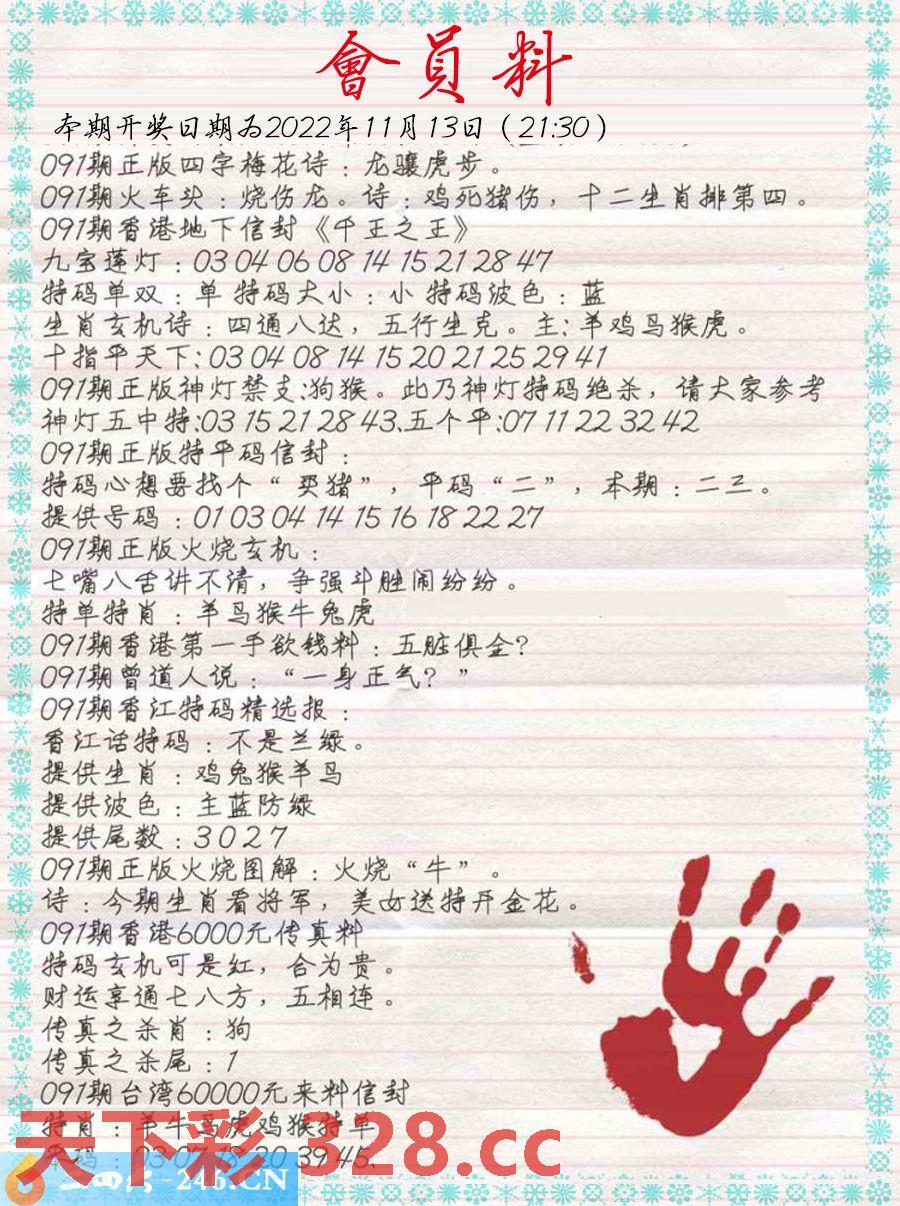 會員料
本期开奖日期为2022年11月13日（21:30）
091期正版四字梅花诗：龙骧虎步。
091期火车头：烧伤龙。诗：鸡死猪伤，十二生肖排第四。
091期香港地下信封《千王之王》
九宝莲灯：03 04 06 08 14 15 21 28 47
特码单双：单 特码大小：小 特码波色：蓝
生肖玄机诗：四通八达，五行生克。主:羊鸡马猴虎。
十指平天下:03 04 08 14 15 20 21 25 29 41
091期正版神灯禁支:狗猴。此乃神灯特码绝杀，请大家参考
神灯五中特:03 15 21 28 43、五个平:07 11 22 32 42
091期正版特平码信封：
特码心想要找个“买猪”，平码“二”，本期：二三。
提供号码：01 03 04 14 15 16 18 22 27
091期正版火烧玄机：
七嘴八舌讲不清，争强斗胜闹纷纷。
特单特肖：羊马猴牛兔虎
091期香港第一手欲钱料：五脏俱全？
091期曾道人说：“一身正气？”
091期香江特码精选报：
香江话特码：不是兰绿。
提供生肖：鸡兔猴羊马
提供波色：主蓝防绿
提供尾数：3 0 2 7
091期正版火烧图解：火烧“牛”。
诗：今期生肖看将军，美女送特开金花。
091期香港6000元传真料
特码玄机可是红，合为贵。
财运享通七八方，五相连。
传真之杀肖：狗
传真之杀尾：1
091期台湾60000元来料信封
特肖：羊牛马虎鸡猴特单
03 07 18 20 39 45、
天下彩 328.cc
-246.CN